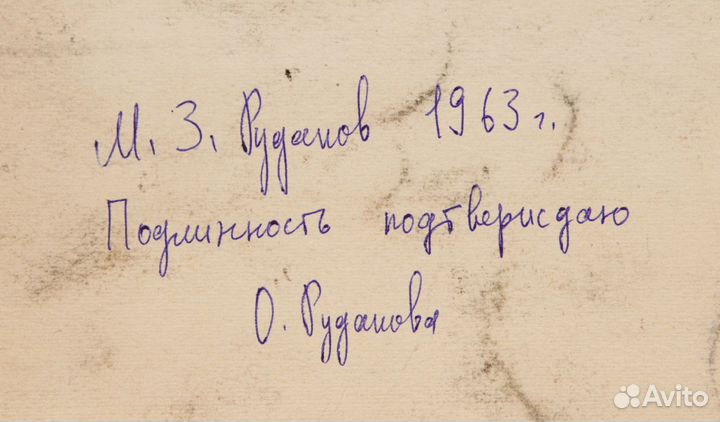 М. З. Рудаков 1963 г.
Подлинность подтверждаю
О. Рудакова
Avito